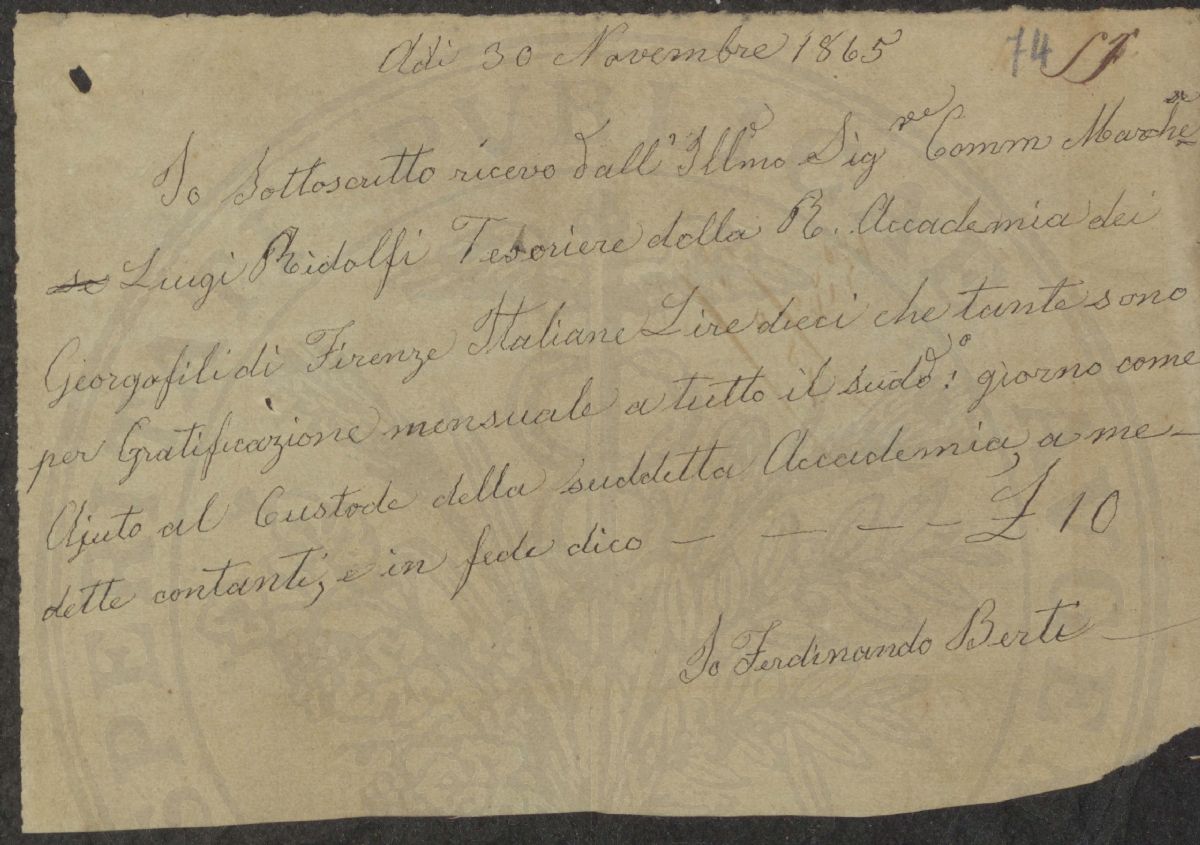 Adì 30 Novembre 1865
74
Io Sottoscritto ricevo dall'Illmo Sigre Comm Marche
se Luigi Ridolfi Tesoriere della R. Accademia dei
Georgofili di Firenze Italiane Lire dieci che tante sono
per Gratificazione mensuale a tutto il sudd.o giorno come
Ajuto al Custode della suddetta Accademia, a me
dette contanti, e in fede dico — — — — £ 10
Io Ferdinando Berti